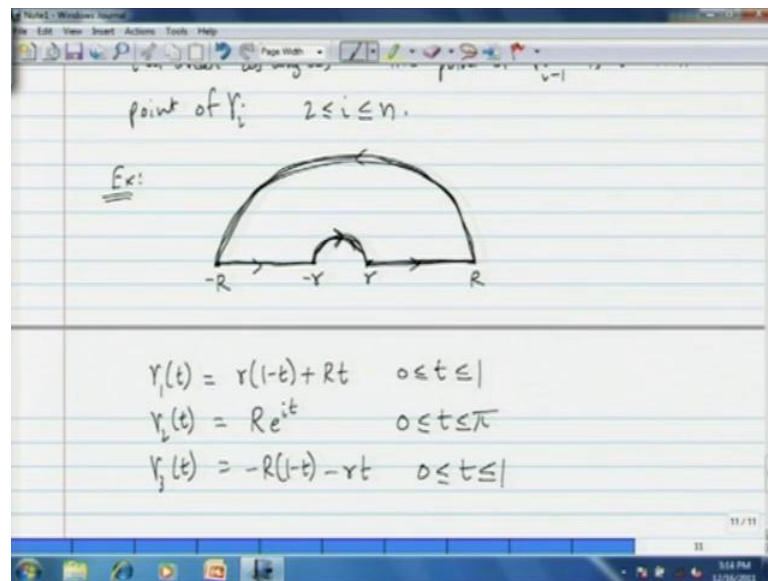 Note1 - Windows Journal
File Edit View Insert Actions Tools Help
Page Width
point of γ_i 2 ≤ i ≤ n.
Ex:
-R -r r R
γ_1(t) = r(1-t) + Rt 0 ≤ t ≤ 1
γ_2(t) = R e^{it} 0 ≤ t ≤ π
γ_3(t) = -R(1-t) - rt 0 ≤ t ≤ 1
11/11
11
3:14 PM
12/16/2011